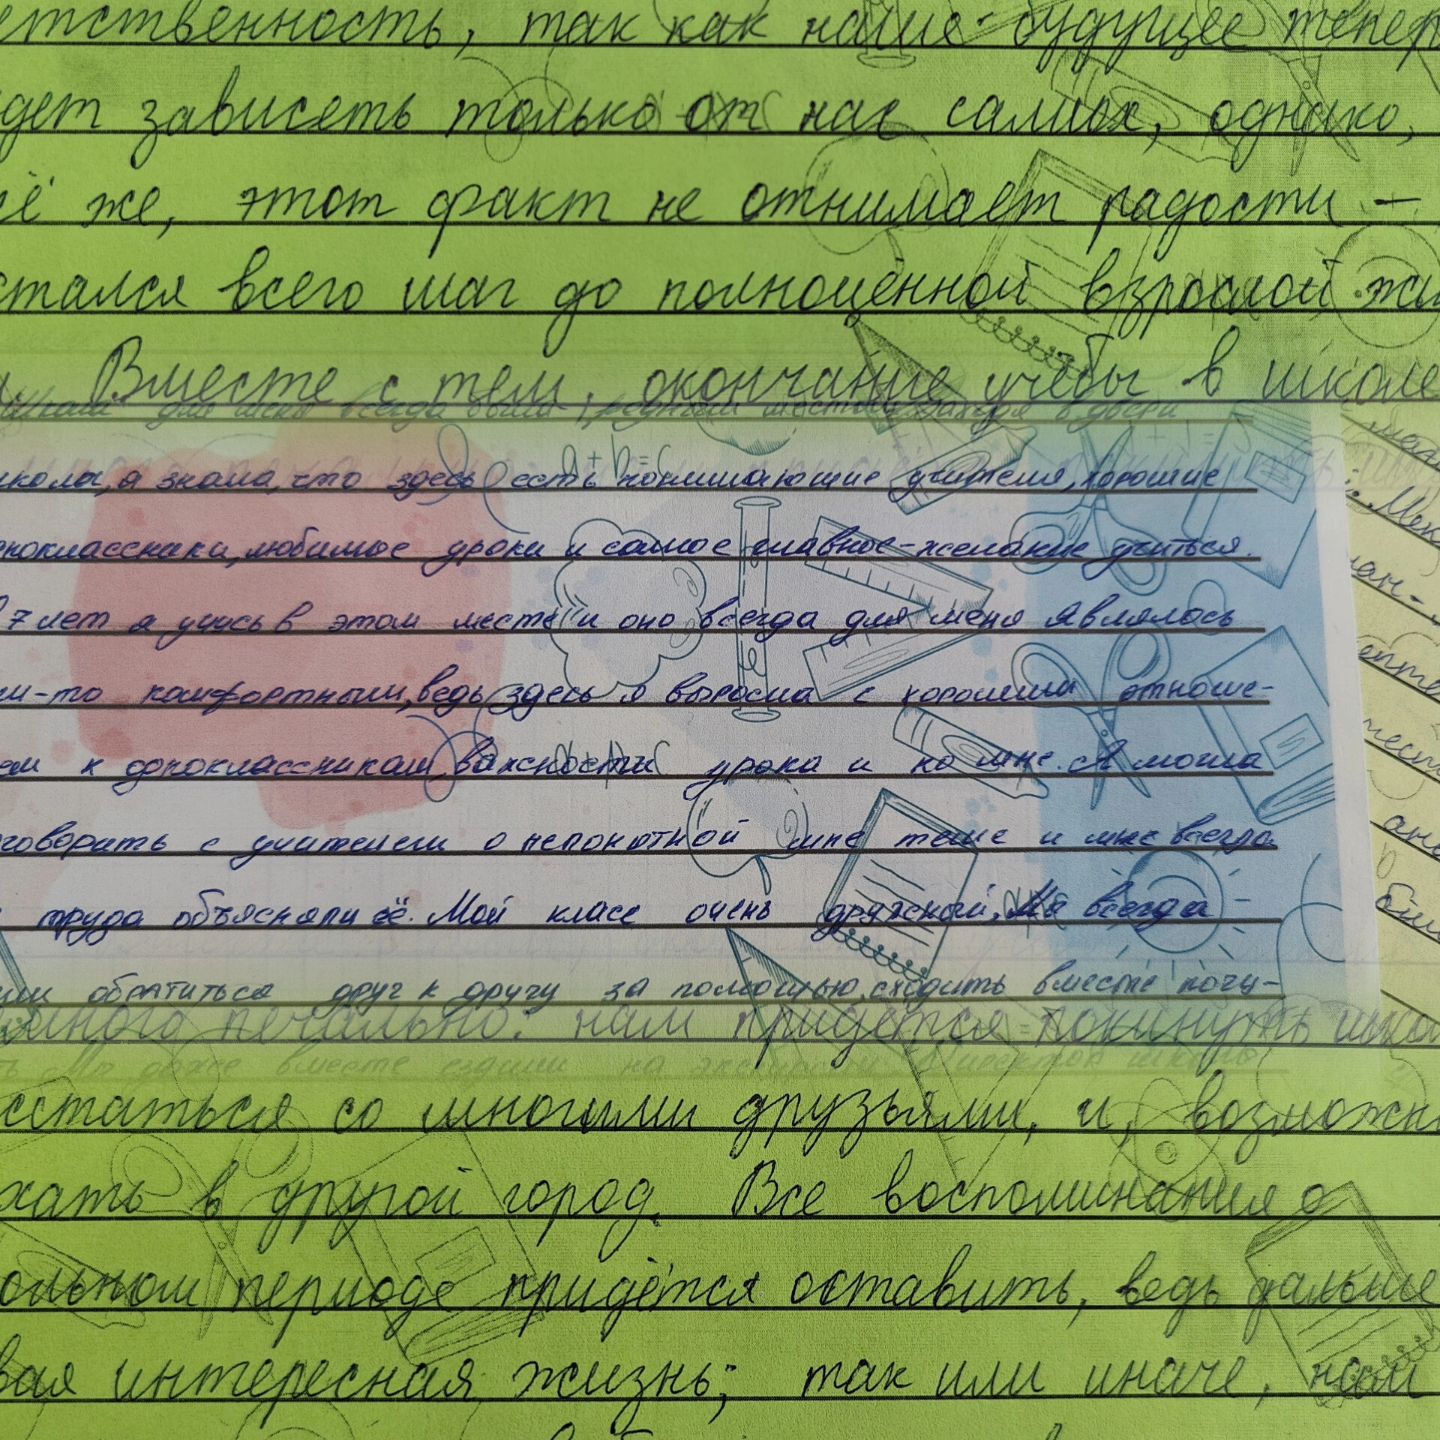 етственность, так как наше будущее тепер
дет зависеть только от нас самих, однако,
ё же, этот факт не отнимает радости –
стался всего шаг до полноценной взрослой жи
Вместе с тем, окончание учёбы в школе
для меня всегда была родным местом, заходя в двери
школы, я знала, что здесь есть понимающие учителя, хорошие
ноклассники, любимые уроки и самое главное - желание учиться.
7 лет я учусь в этом месте и оно всегда для меня являлось
м-то комфортным, ведь здесь я выросла с хорошим отноше-
ем к одноклассникам, важности урока и ко мне. Я могла
говорить с учителем о непонятной мне теме и мне всегда
труда объясняли её. Мой класс очень дружный, Мы всегда
обратиться друг к другу за помощью, сходить вместе погу-
много печально: нам придётся покинуть шко
Мы даже вместе ездили на экскурсии
сстаться со многими друзьями, и, возможн
хать в другой город. Все воспоминания о
ольном периоде придётся оставить, ведь дальше
вая интересная жизнь; так или иначе, нам